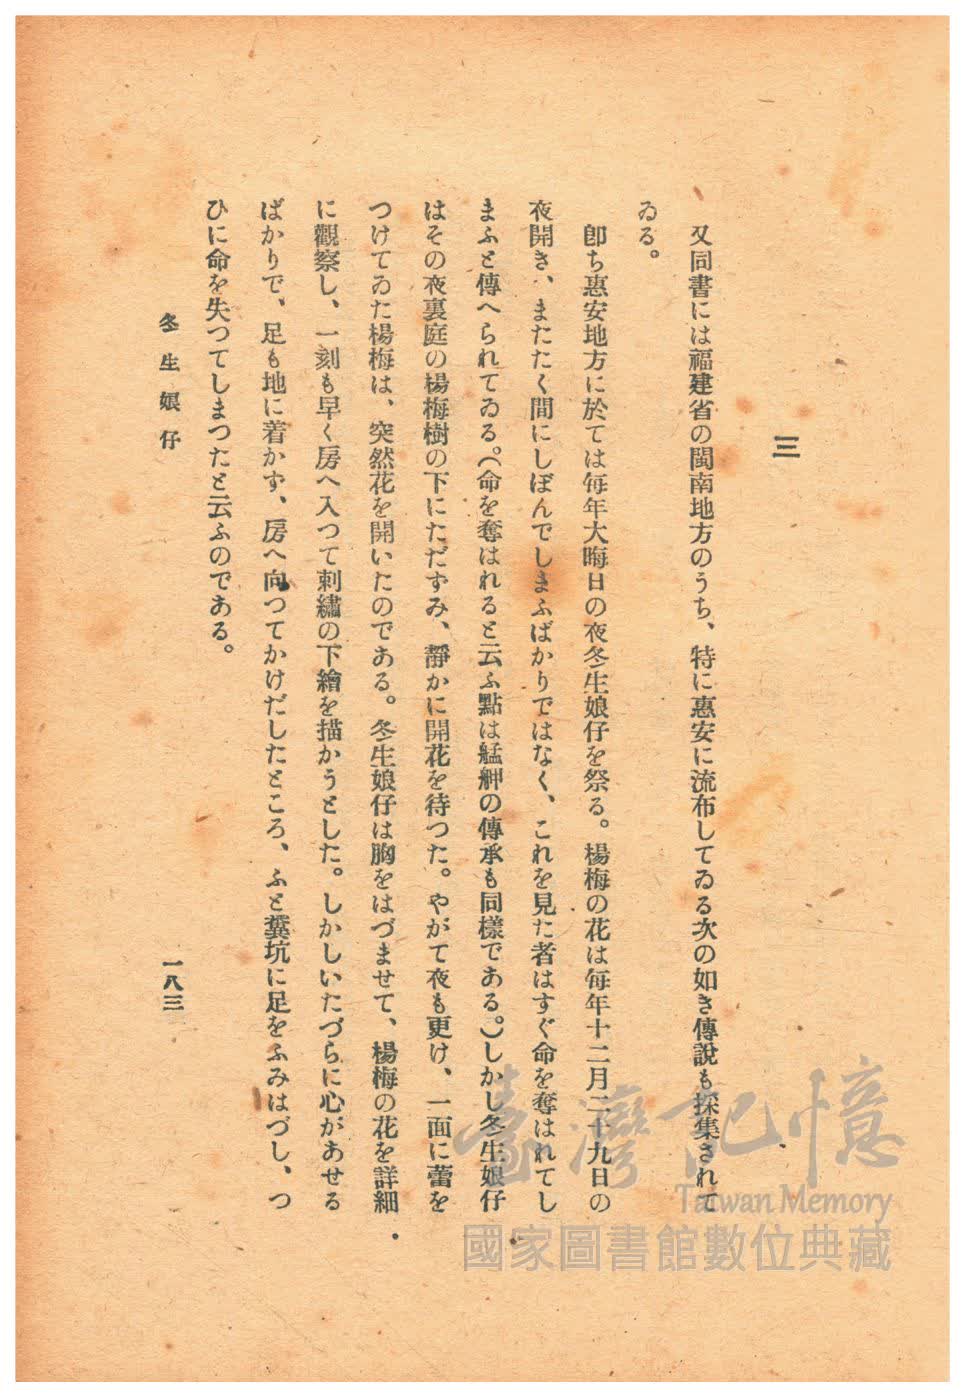 三
又同書には福建省の閩南地方のうち、特に惠安に流布してゐる次の如き傳說も採集されて
ゐる。
卽ち惠安地方に於ては每年大晦日の夜冬生娘仔を祭る。楊梅の花は每年十二月二十九日の
夜開き、またたく間にしぼんでしまふばかりではなく、これを見た者はすぐ命を奪はれてし
まふと傳へられてゐる。（命を奪はれると云ふ點は艋舺の傳承も同樣である。）しかし冬生娘仔
はその夜裏庭の楊梅樹の下にただずみ、靜かに開花を待つた。やがて夜も更け、一面に蕾を
つけてゐた楊梅は、突然花を開いたのである。冬生娘仔は胸をはづませて、楊梅の花を詳細
に觀察し、一刻も早く房へ入つて刺繡の下繪を描かうとした。しかしいたづらに心があせる
ばかりで、足も地に着かず、房へ向つてかけだしたところ、ふと糞坑に足をふみはづし、つ
ひに命を失つてしまつたと云ふのである。
冬生娘仔
一八三
臺灣記憶
Taiwan Memory
國家圖書館數位典藏